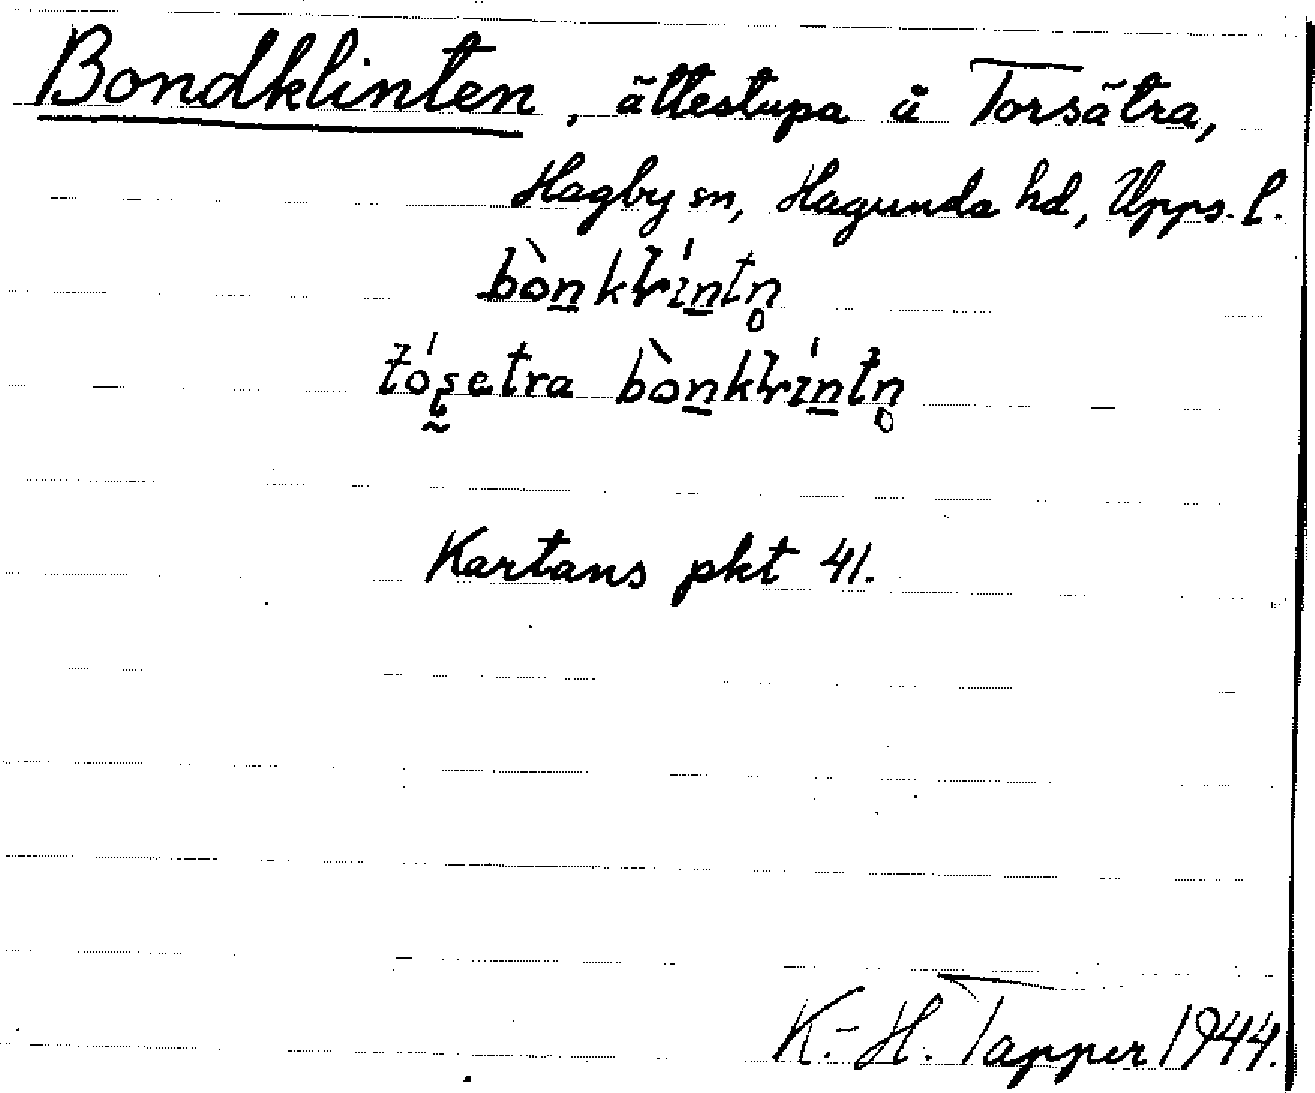 Bondklinten, ättestupa å Torsätra,
Hagby sn, Hagunda hd, Upps. l.
bònkłíntn̥
tóʂetra bònkłíntn̥
Kartans pkt 41.
K.-H. Tapper 1944.